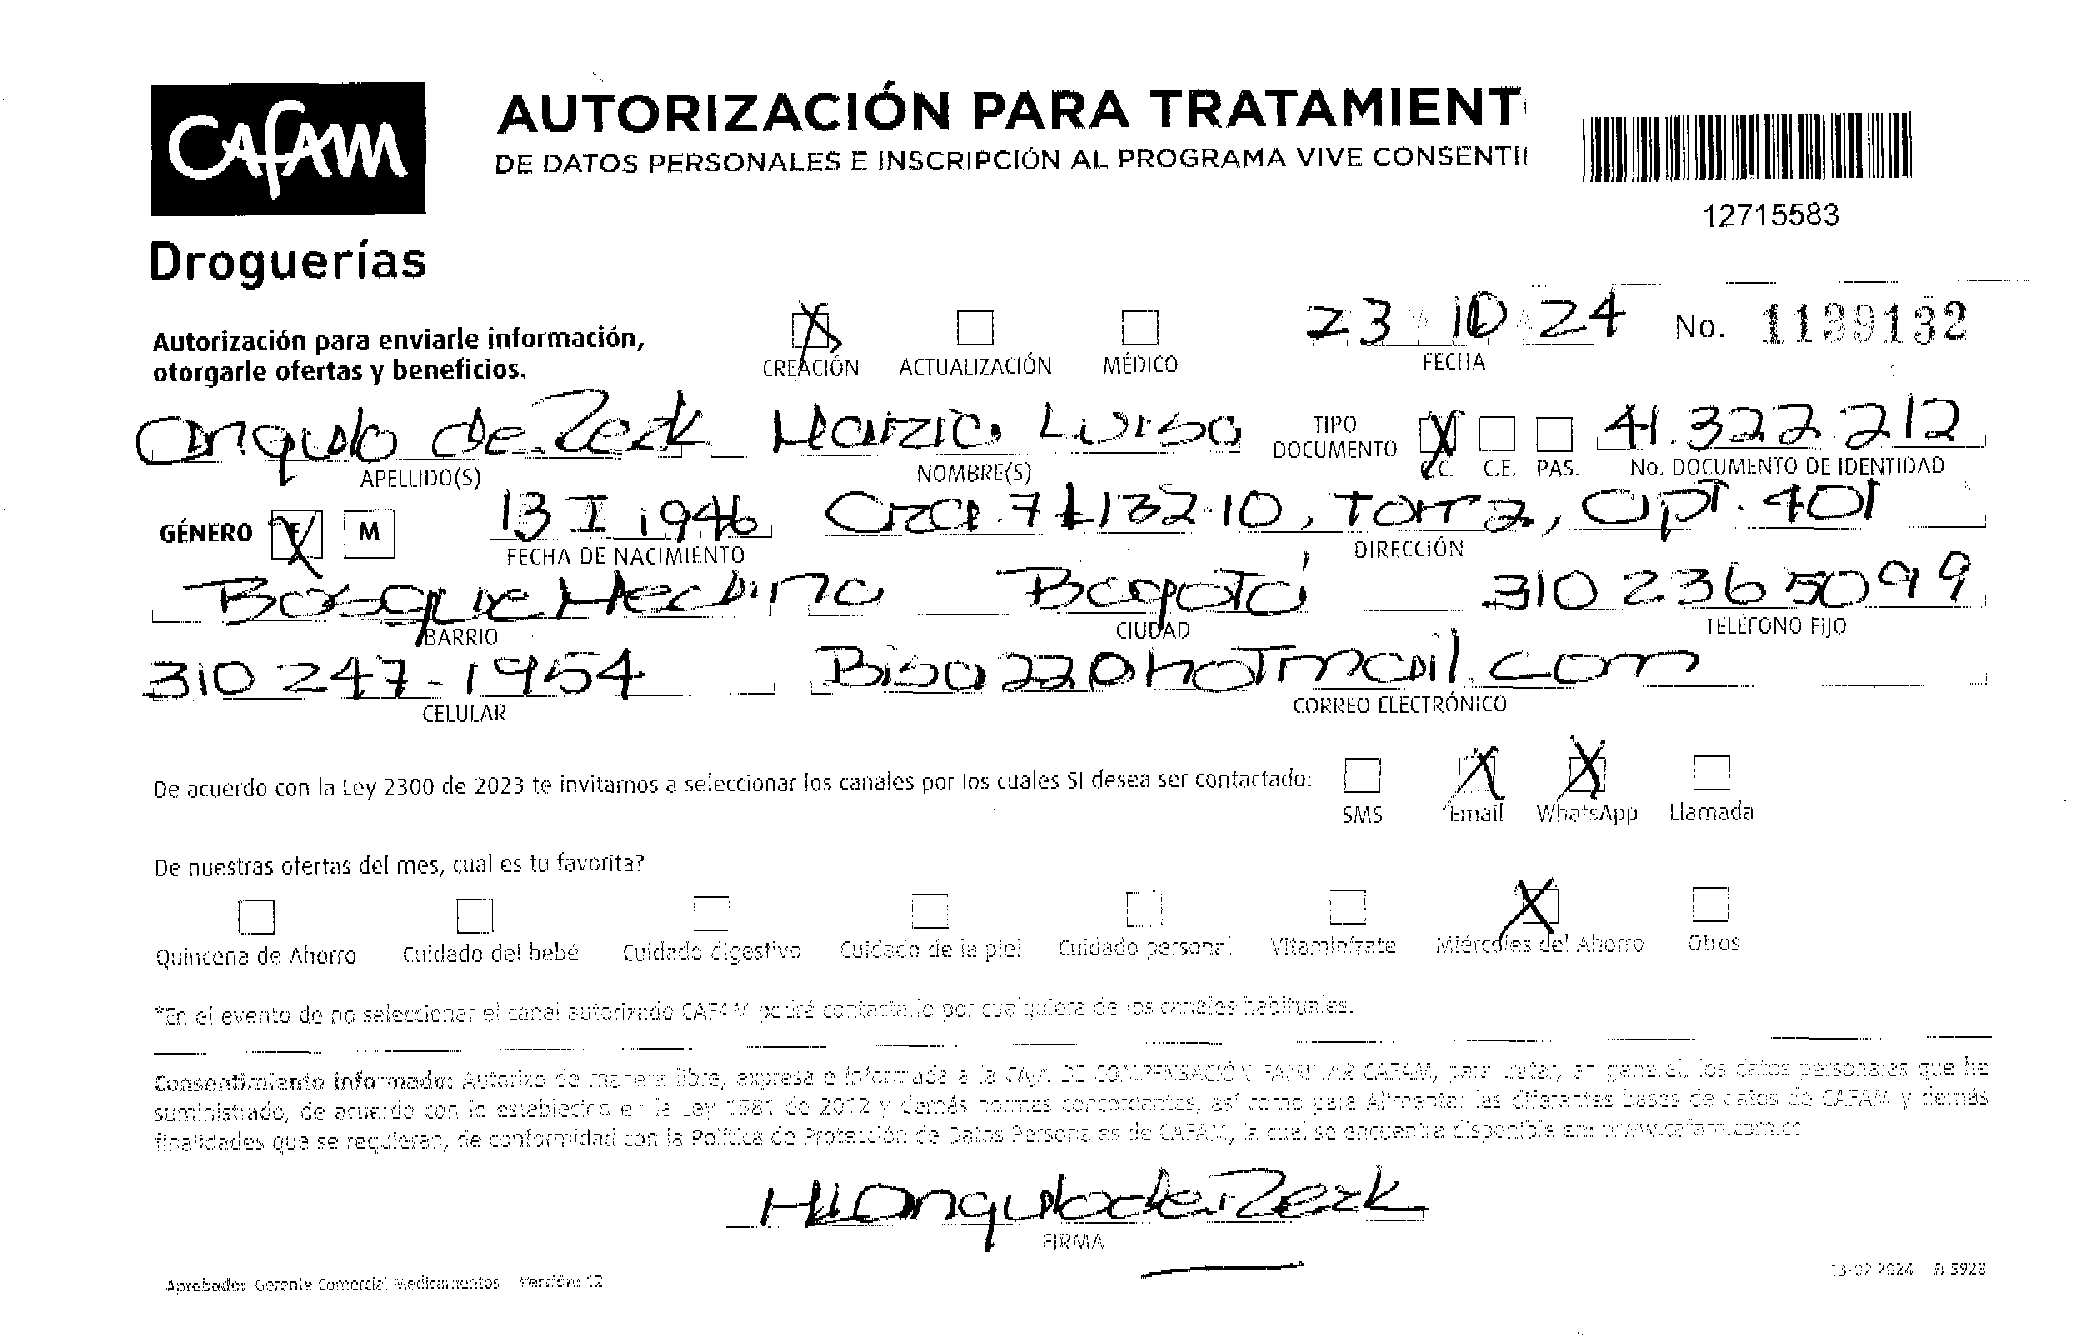 CAFAM
Droguerías
AUTORIZACIÓN PARA TRATAMIENT
DE DATOS PERSONALES E INSCRIPCIÓN AL PROGRAMA VIVE CONSENTI
12715583
Autorización para enviarle información,
otorgarle ofertas y beneficios.
CREACIÓN ACTUALIZACIÓN MÉDICO
23 10 24
FECHA
No. 1139132
Angulo de Zerk
APELLIDO(S)
Luisa
NOMBRE(S)
TIPO
DOCUMENTO
C.C. C.E. PAS.
41.322.212
No. DOCUMENTO DE IDENTIDAD
GÉNERO F M
13 I 1946
FECHA DE NACIMIENTO
Cra. 7 # 132-10, Torr 2, Apt. 401
DIRECCIÓN
Bosque Medina
BARRIO
Bogotá
CIUDAD
310 236 5099
TELÉFONO FIJO
310 247-1954
CELULAR
hotmail.com
CORREO ELECTRÓNICO
De acuerdo con la Ley 2300 de 2023 te invitamos a seleccionar los canales por los cuales SI desea ser contactado:
SMS Email WhatsApp Llamada
De nuestras ofertas del mes, cual es tu favorita?
Quincena de Ahorro Cuidado del bebé Cuidado digestivo Cuidado de la piel Cuidado personal Vitamínzate Miércoles del Ahorro Otros
*En el evento de no seleccionar el canal autorizado CAFAM podrá contactarlo por cualquiera de los canales habituales.
Consentimiento informado: Autorizo de manera libre, expresa e informada a la CAJA DE COMPENSACIÓN FAMILIAR CAFAM, para tratar, en general, los datos personales que he
suministrado, de acuerdo con lo establecido en la Ley 1581 de 2012 y demás normas concordantes, así como para Alimentar las diferentes bases de datos de CAFAM y demás
finalidades que se requieran, de conformidad con la Política de Protección de Datos Personales de CAFAM, la cual se encuentra disponible en: www.cafam.com.co
Angulo de Zerk
FIRMA
Aprobador Gerente Comercial Medicamentos Versión: 12
13-02-2024 FI 5928